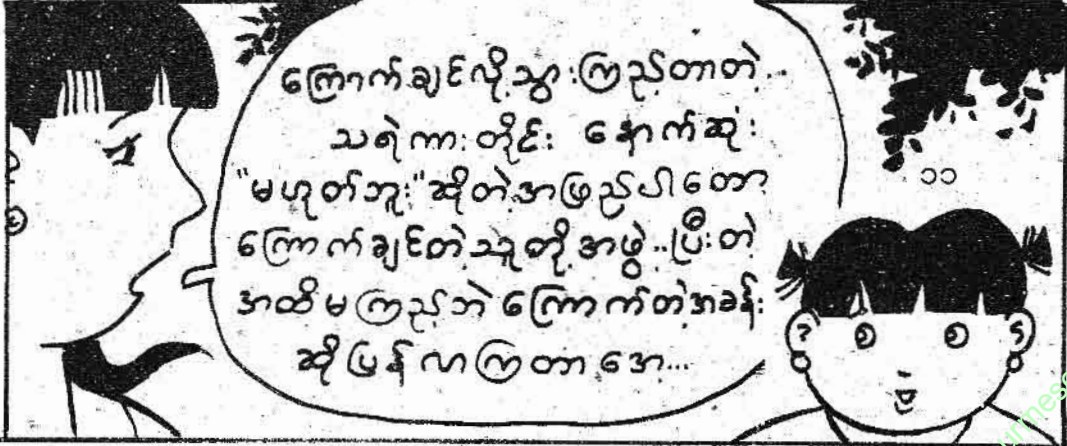 ကြောက်ချင်လို့သွားကြည့်တာတဲ့..
သရဲကားတိုင်း နောက်ဆုံး
"မဟုတ်ဘူး"ဆိုတဲ့အဖြေပါတော့
ကြောက်ချင်တဲ့သူတို့အဖွဲ့..ပြီးတဲ့
အထိမကြည့်ဘဲ ကြောက်တဲ့အခန်း
ဆိုပြန်လာကြတာအေ့...
၁၁